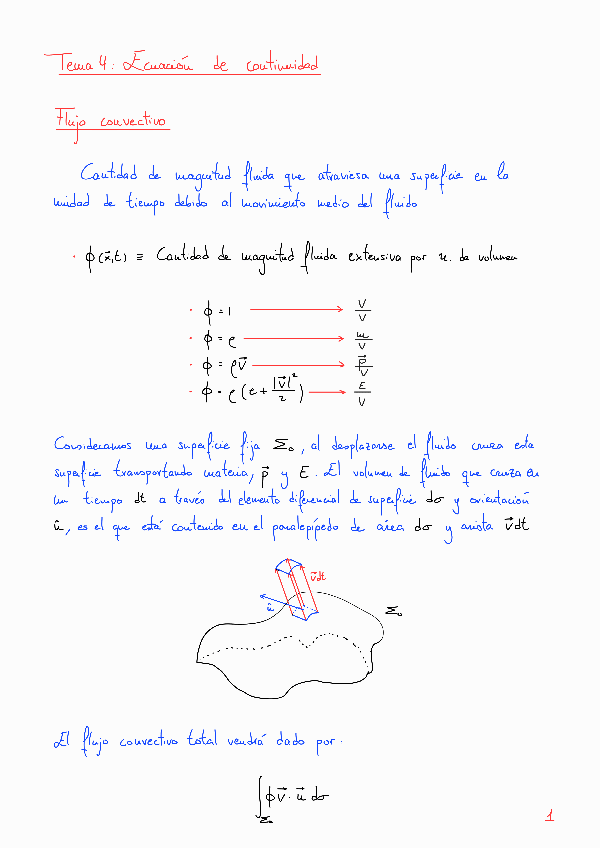 Tema 4: Ecuación de continuidad
Flujo convectivo
Cantidad de magnitud fluida que atraviesa una superficie en la
unidad de tiempo debido al movimiento medio del fluido
· ϕ(x⃗,t) ≡ Cantidad de magnitud fluida extensiva por u. de volumen
· ϕ = 1 → V/V
· ϕ = ρ → m/V
· ϕ = ρv⃗ → p⃗/V
· ϕ = ρ(e + |v⃗|²/2) → E/V
Consideramos una superficie fija Σ₀, al desplazarse el fluido cruza esta
superficie transportando materia, p⃗ y E. El volumen de fluido que cruza en
un tiempo dt a través del elemento diferencial de superficie dσ y orientación
û, es el que está contenido en el paralepípedo de área dσ y arista v⃗dt
v⃗dt
û
Σ₀
El flujo convectivo total vendrá dado por:
∫_Σ₀ ϕv⃗·u⃗ dσ
1